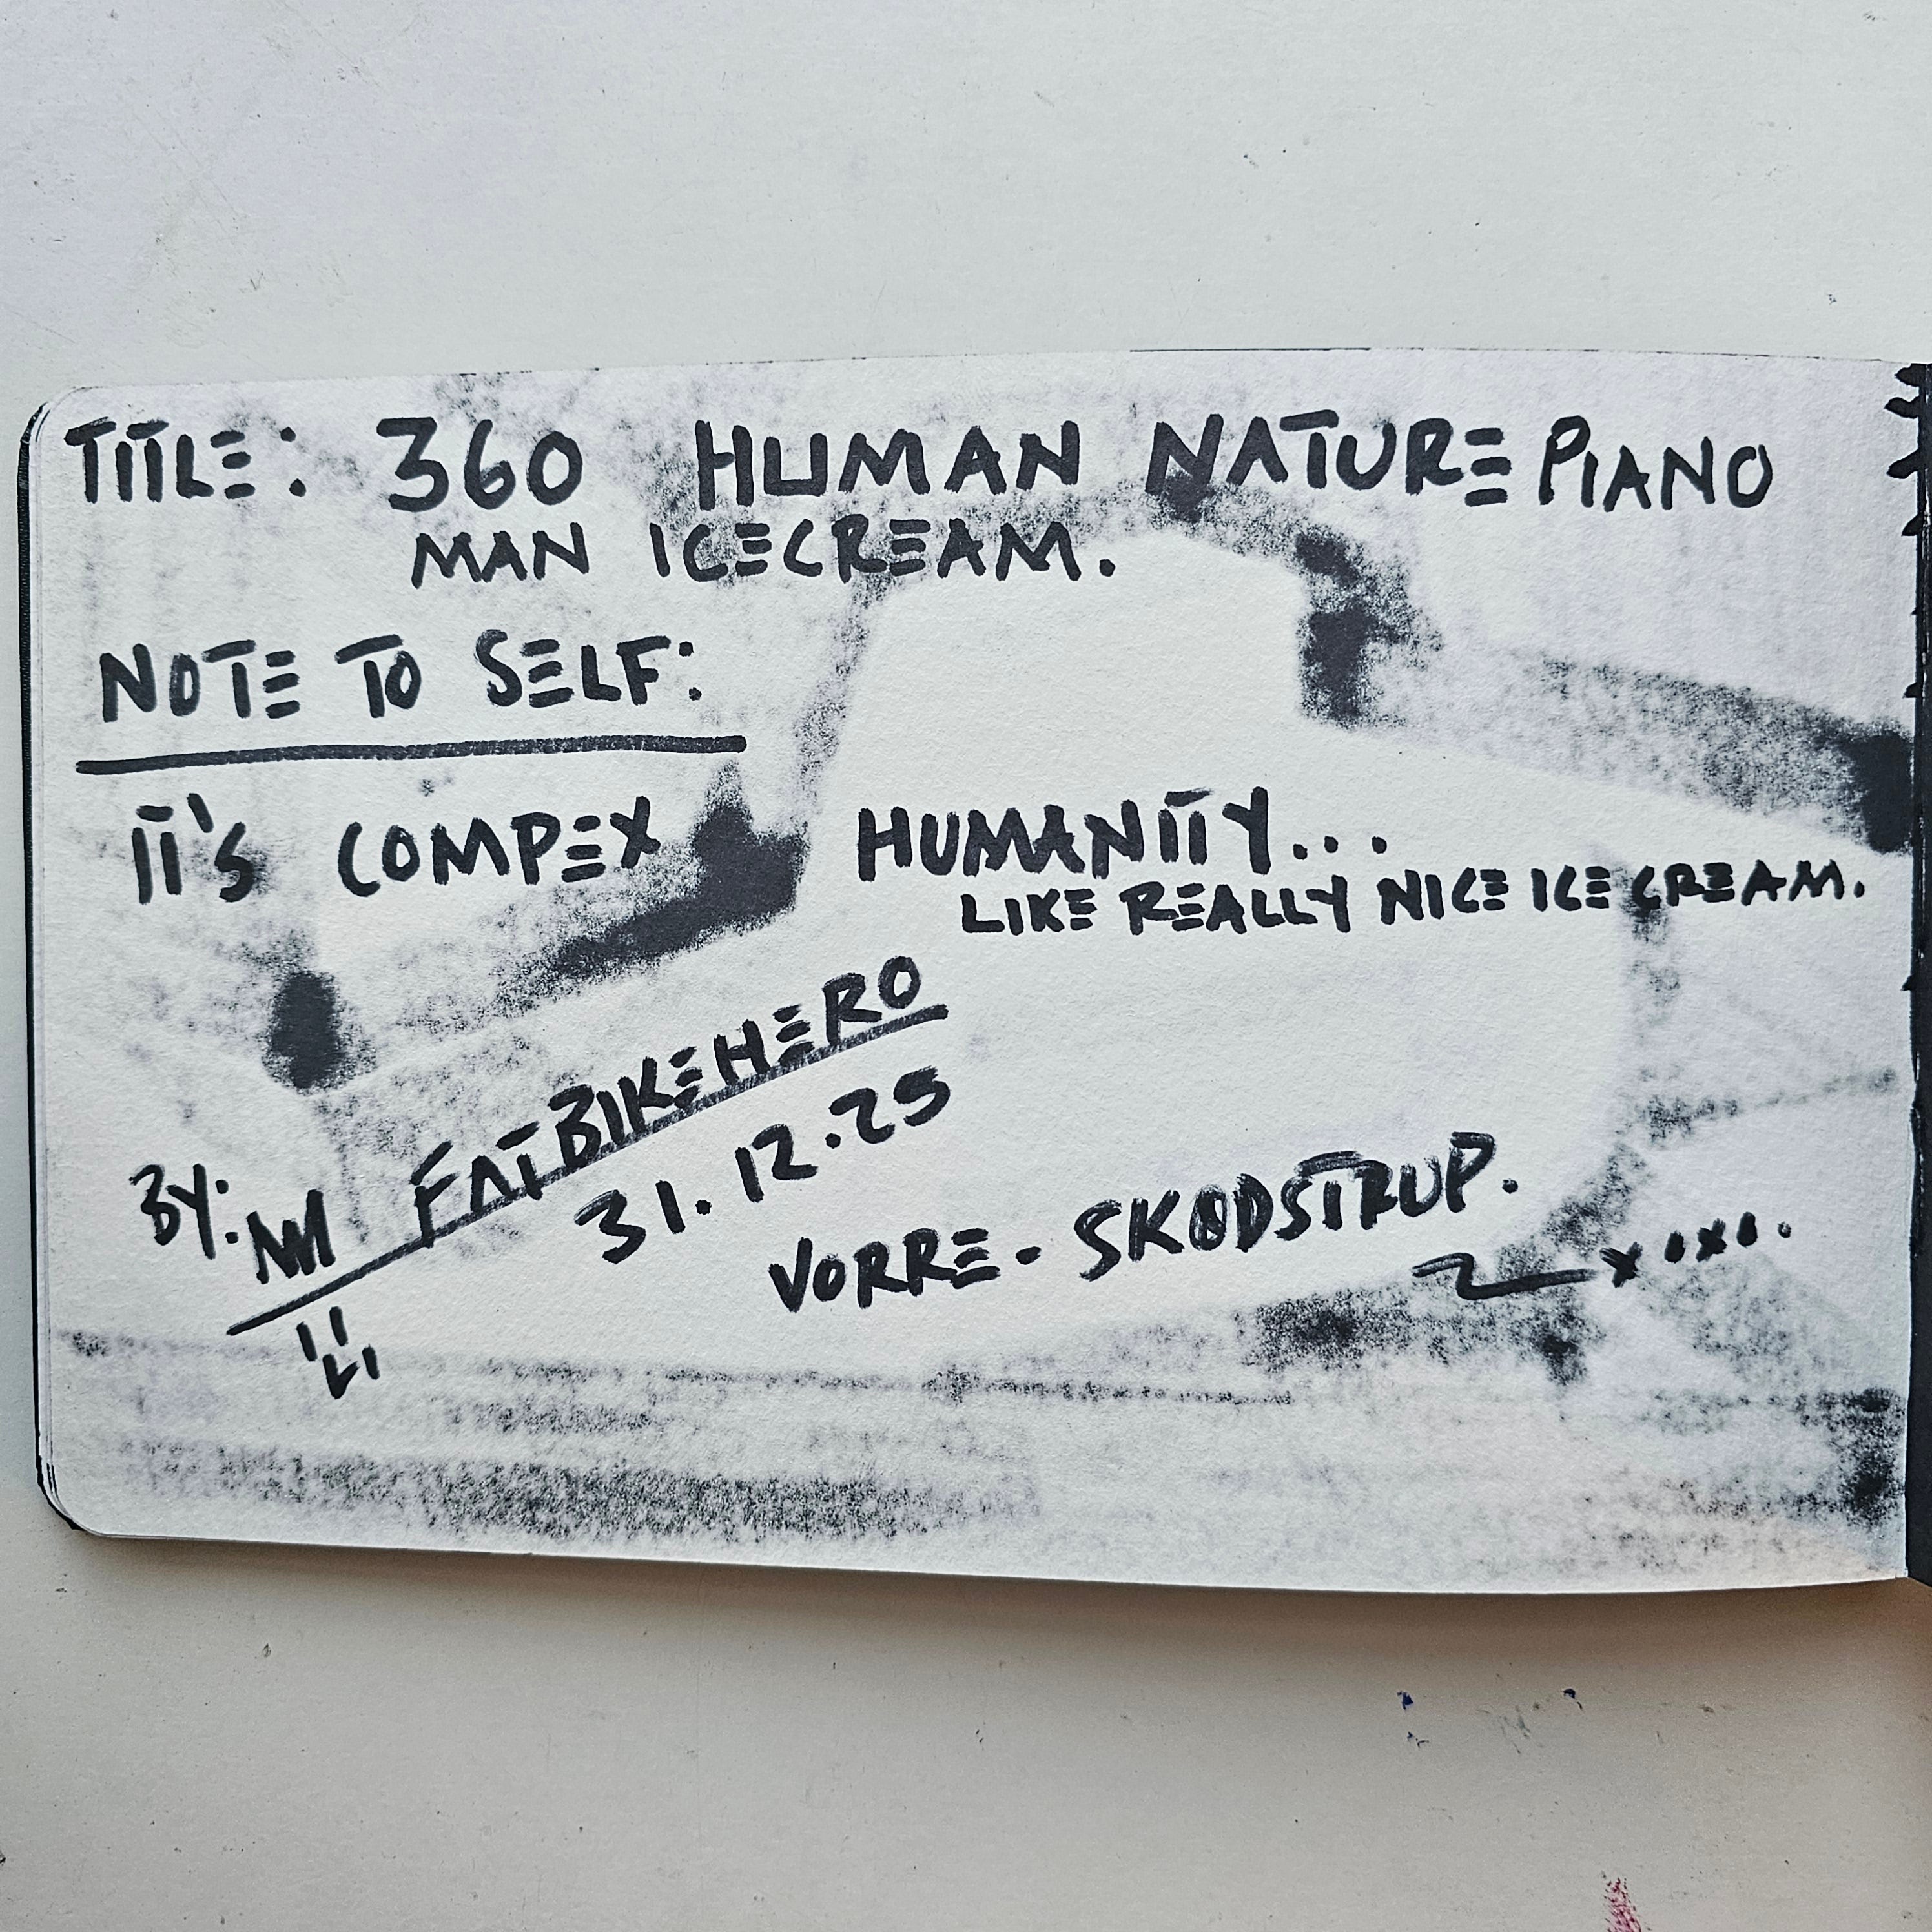 TITLE: 360 HUMAN NATURE PIANO
MAN ICECREAM.
NOTE TO SELF:
IT'S COMPEX HUMANITY...
LIKE REALLY NICE ICE CREAM.
BY: FATBIKEHERO
31.12.25
VORRE - SKØDSTRUP.